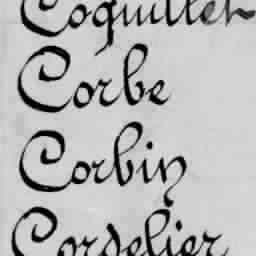 Coquillet
Corbe
Corbin
Cordelier